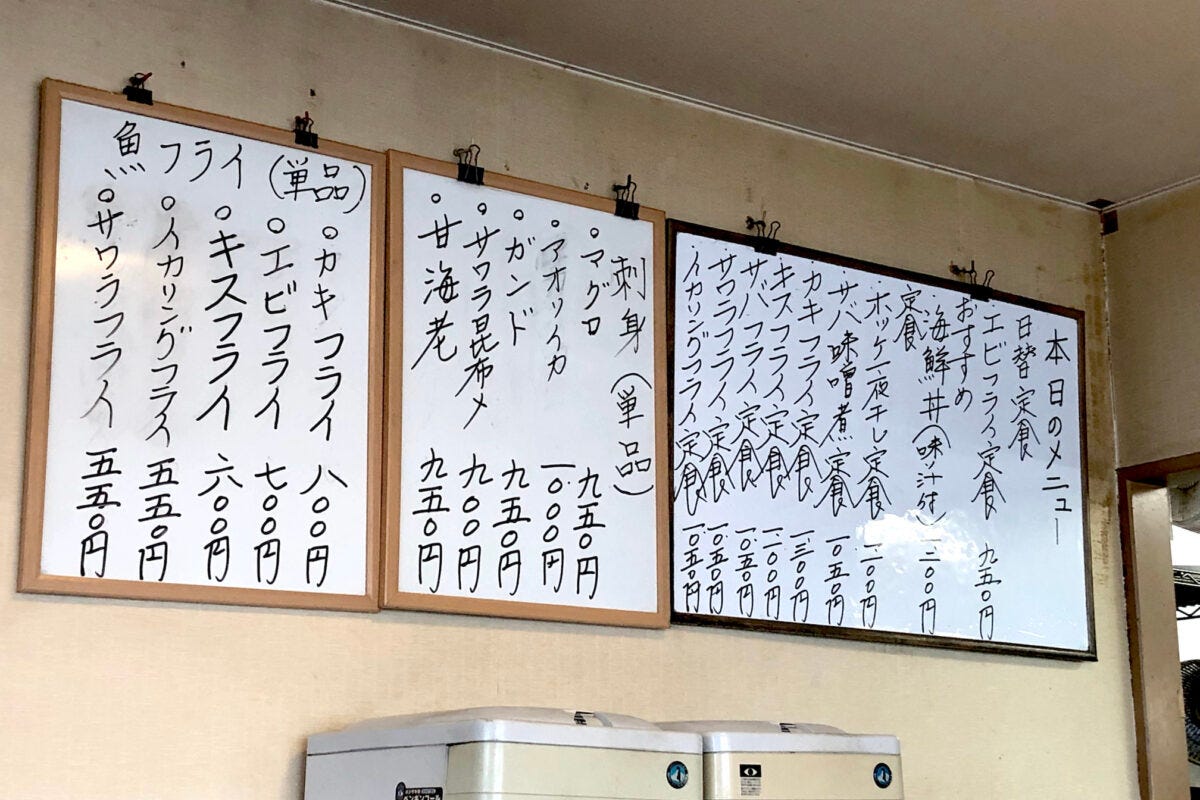 本日のメニュー
日替定食
・エビフライ定食 九五〇円
おすすめ
・海鮮丼(味汁付) 一二〇〇円
定食
・ホッケ一夜干し定食
・サバ味噌煮定食 一〇五〇円
・カキフライ定食 一三〇〇円
・キスフライ定食 一一〇〇円
・サバフライ定食 一〇五〇円
・サワラフライ定食 一〇五〇円
・イカリングフライ定食 一〇五〇円
刺身(単品)
○マグロ 九五〇円
○アオリイカ 一〇〇〇円
○ガンド 九五〇円
○サワラ昆布〆 九〇〇円
○甘海老 九五〇円
魚フライ(単品)
○カキフライ 八〇〇円
○エビフライ 七〇〇円
○キスフライ 六〇〇円
○イカリングフライ 五五〇円
○サワラフライ 五五〇円